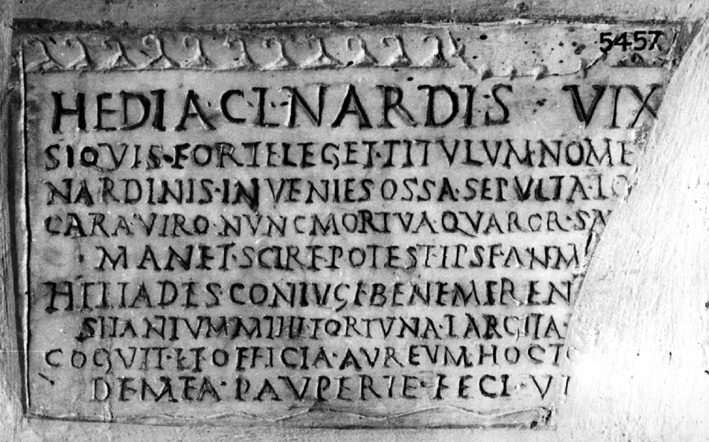 5457
HEDIA·C·L·NARDIS · VIX
SIQVIS·FORTELEGET·TITVLVM·NOME
NARDINIS·INVENIES OSSA·SEPVLTA·LO
CARA·VIRO·NVNC MORTVA
MANET·SCIRE·POTEST·IPSE
CONIVGEBENEMEREN
FORTVNA·LARGITA·
ET OFFICIA·AVREVM·HOC
DE MEA·PAVPERIE·FECI·VI